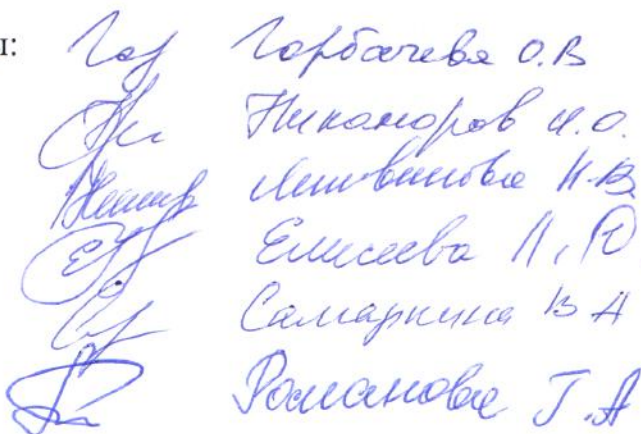 ы: Горбачева О.В
Никоноров И.О.
Литвинова Н.В.
Елисеева Л.Ю.
Самаркина В А
Романова Т.А